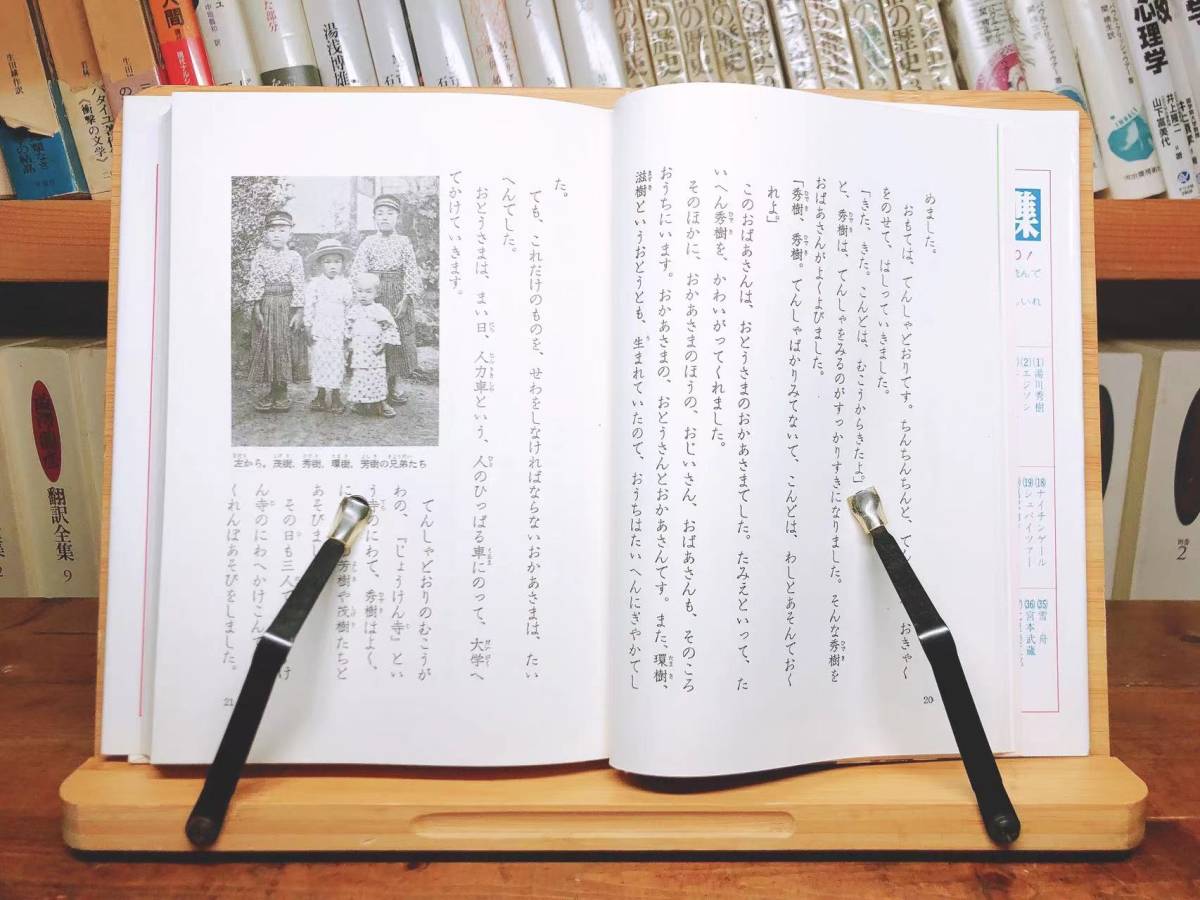 めました。
おもては、てんしゃどおりです。ちんちんちんと、てん おきゃく
をのせて、はしっていきました。
「きた、きた。こんどは、むこうからきたよ。」
と、秀樹は、てんしゃをみるのがすっかりすきになりました。そんな秀樹を
おばあさんがよくよびました。
「秀樹、秀樹。てんしゃばかりみてないて、こんどは、わしとあそんておく
れよ」
このおばあさんは、おとうさまのおかあさまてした。たみえといって、た
いへん秀樹を、かわいがってくれました。
そのほかに、おかあさまのほうの、おじいさん、おばあさんも、そのころ
おうちにいます。おかあさまの、おとうさんとおかあさんてす。また、環樹、
滋樹というおとうとも、生まれていたので、おうちはたいへんにぎやかてし
20
た。
ても、これだけのものを、せわをしなければならないおかあさまは、たい
へんてした。
おとうさまは、まい日、人力車という、人のひっぱる車にのって、大学へ
てかけていきます。
左から。茂樹、秀樹、環樹、芳樹の兄弟たち
てんしゃどおりのむこうが
わの、『じょうけん寺』とい
う寺のにわて、秀樹はよく、
に 芳樹や茂樹たちと
あそびまし
その日も三人て け
ん寺のにわへかけこん
くれんぼあそびをしました。
21
(1)湯川秀樹
(2)エジソン
(18)ナイチンゲール
(19)シュバイツァー
(35)雪舟
(36)宮本武蔵
人間
湯浅博雄
の歴史
心理学
井上隆二
山下富美代
《衝撃の文学》
生田耕作訳
翻訳全集
9
別巻
2